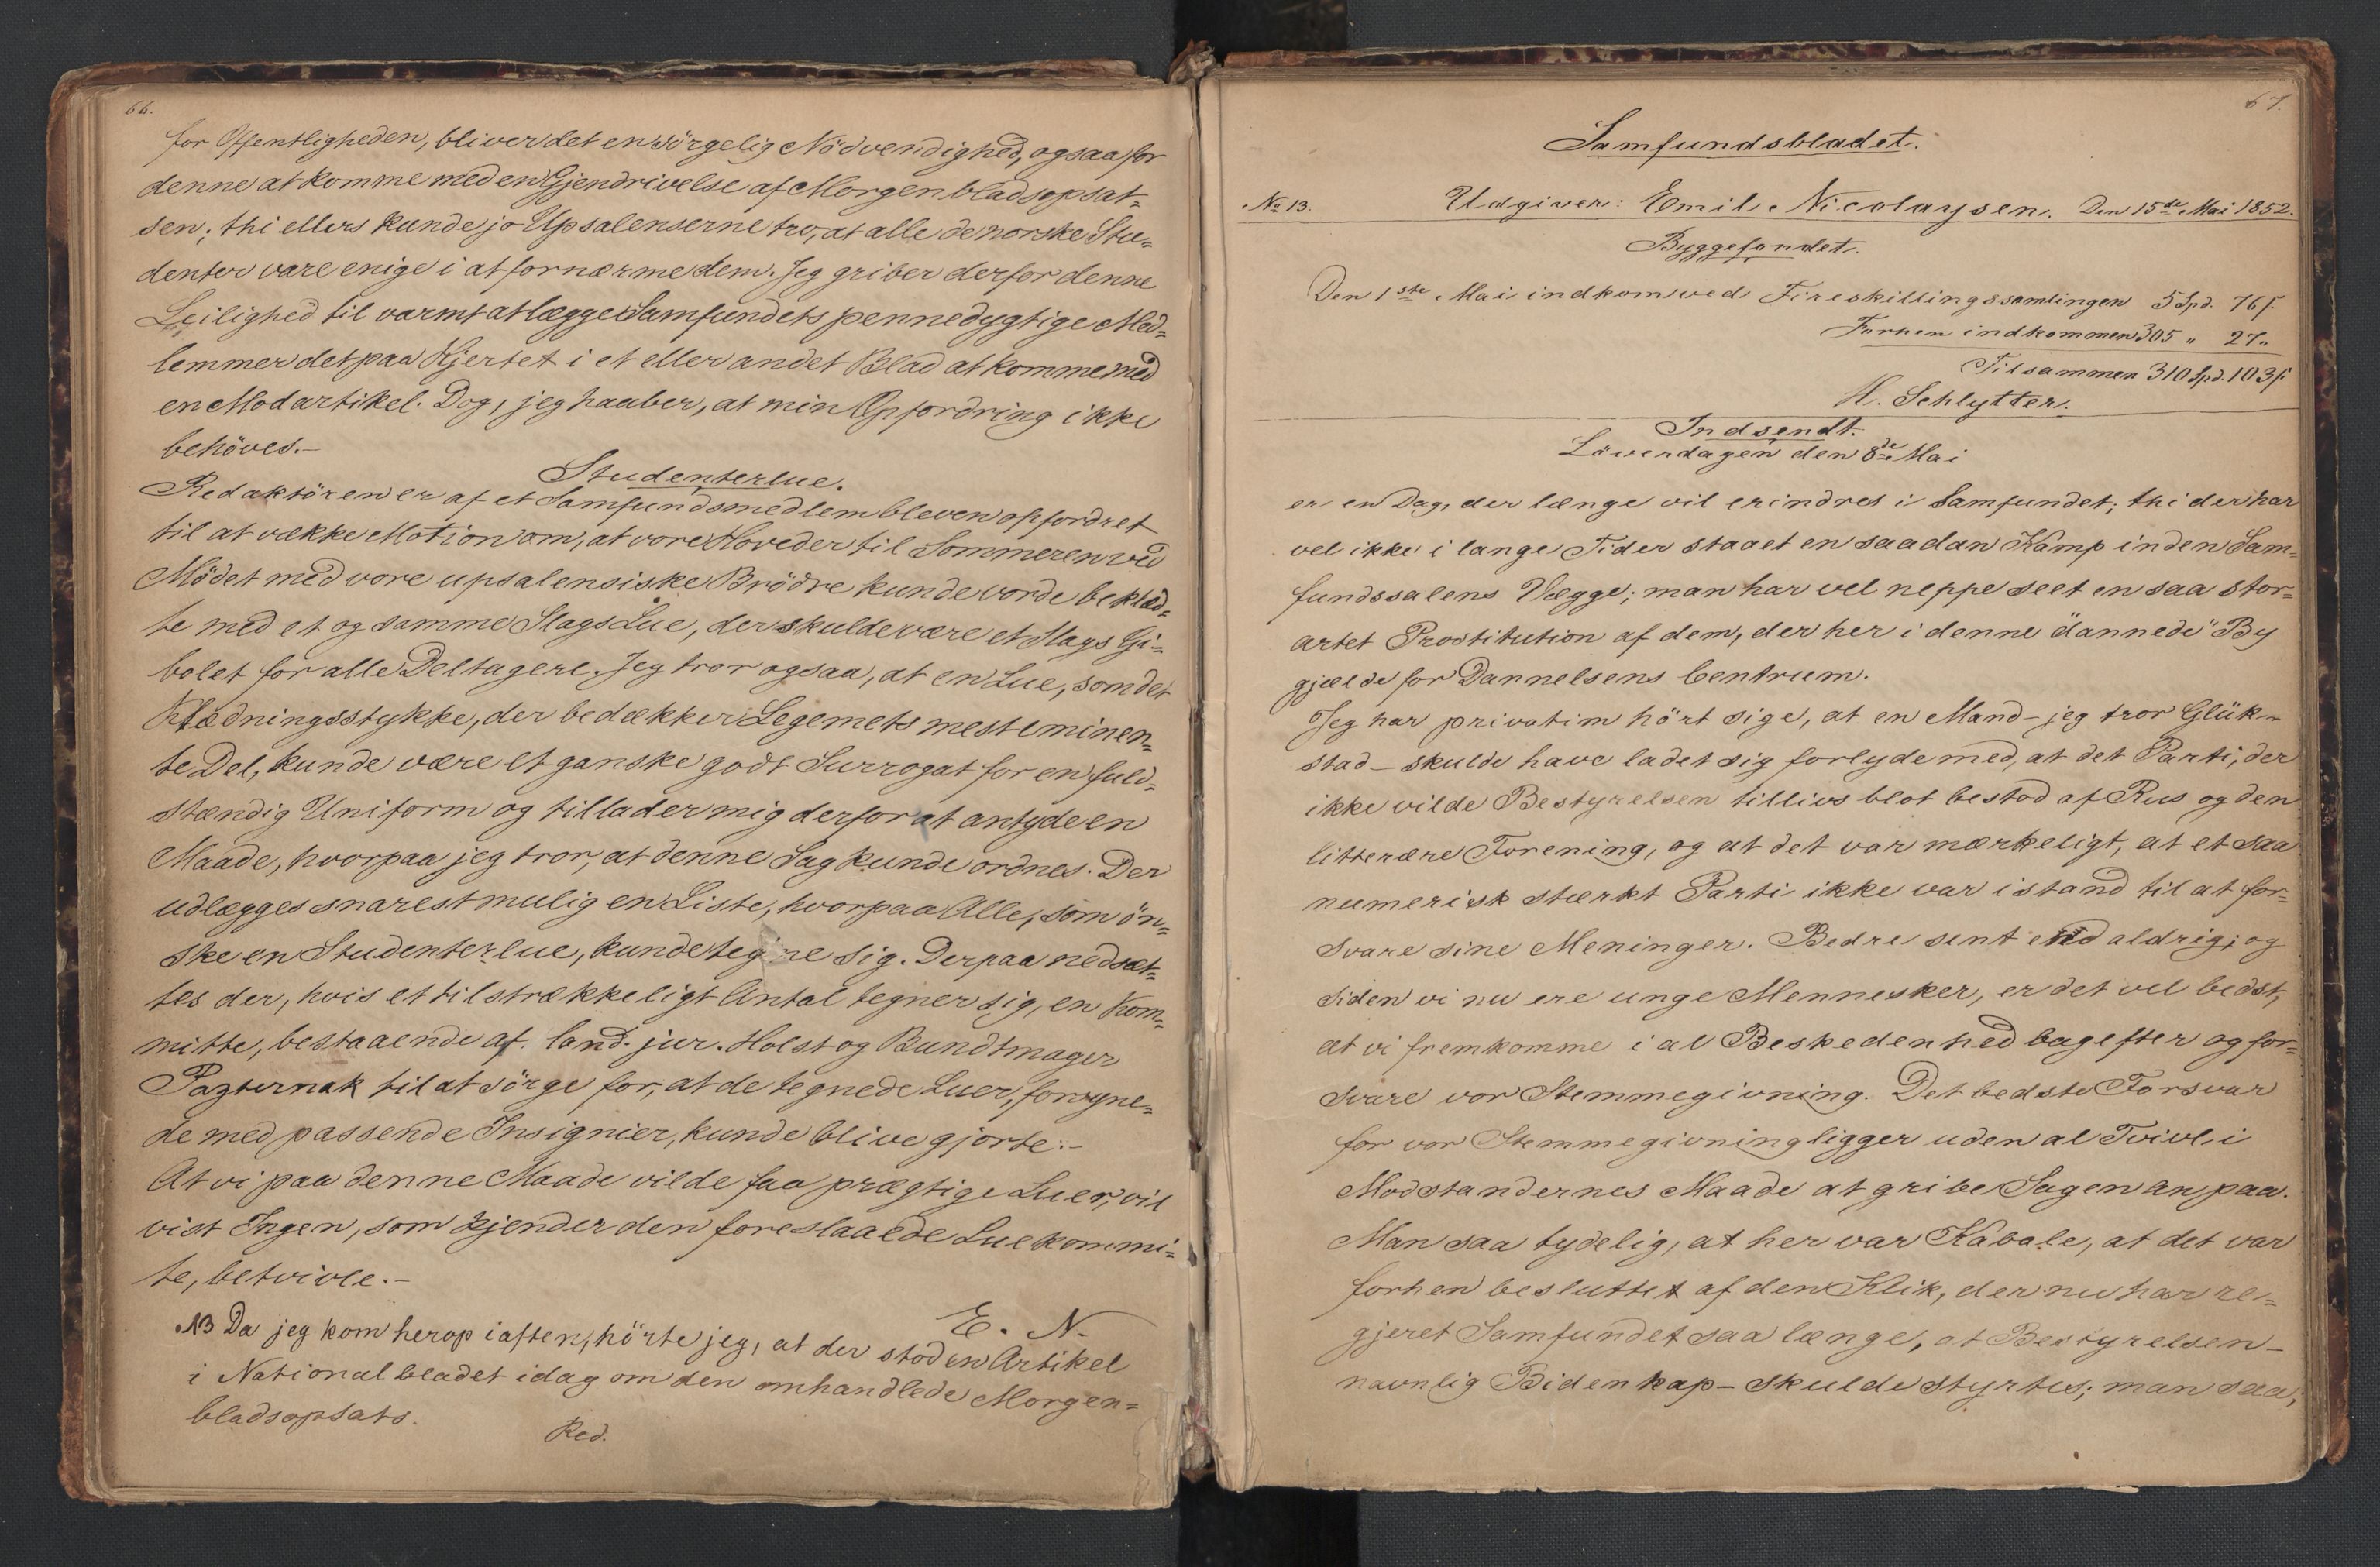 66.
for Offentligheden, bliver det en sörgelig Nödvendighed, ogsaa for
denne at komme med en Gjendrivelse af Morgenbladsopsat=
sen; thi ellers kunde jo Upsalenserne tro, at alle de norske Stu=
denter vare enige i at fornærme dem. Jeg griber derfor denne
Leilighed til varmt at lægge Samfundets pennedygtige Med=
lemmer det paa Hjertet i et eller andet Blad at komme med
en Modartikel. Dog, jeg haaber, at min Opfordring ikke
behöves.-
Studenterlue.
Redaktören er af et Samfundsmedlem bleven opfordret
til at vække Motion om, at vore Hoveder til Sommeren ved
Mödet med vore upsalensiske Brödre kunde vorde beklæd=
te med et og samme Slags Lue, der skulde være et Slags Gi=
bolet for alle Deltagere. Jeg tror ogsaa, at en Lue, som det
Klædningsstykke, der bedækker Legemets mest eminen=
te Del, kunde være et ganske godt Surrogat for en fuld=
stændig Uniform og tillader mig derfor at antyde en
Maade, hvorpaa jeg tror, at denne Sag kunde ordnes. Der
udlægges snarest mulig en Liste, hvorpaa Alle, som ön=
ske en Studenterlue, kunde tegne sig. Derpaa nedsæt=
tes der, hvis et tilstrækkeligt Antal tegner sig, en Kom=
mitte, bestaaende af Cand. jur. Holst og Bundtmager
Pazternak til at sörge for, at de tegnede Luer, forsyne=
de med passende Insignier, kunde blive gjorte.-
At vi paa denne Maade vilde faa prægtige Luer, vil
vist Ingen, som kjender den foreslaaede Luekommi=
te, betvivle.-
E. N.
NB Da jeg kom herop iaften, hörte jeg, at der stod en Artikel
i Nationalbladet idag om den omhandlede Morgen=
bladsopsats.
Red.
67.
Samfundsbladet.
No 13. Udgiver: Emil Nicolaysen. Den 15de Mai 1852.
Byggefondet.
Den 1ste Mai indkom ved Fireskillingssamlingen 5 Spd. 76 ſ.
Forhen indkommen 305 " 27 "
Tilsammen 310 Spd. 103 ſ.
H. Schlytter.
Indsendt.
Löverdagen den 8de Mai
er en Dag, der længe vil erindres i Samfundet; thi der har
vel ikke i lange Tider staaet en saadan Kamp inden Sam=
fundssalens Vægge; man har vel neppe seet en saa stor=
artet Prostitution af dem, der her i denne "dannede" By
gjælde for Dannelsens Centrum.
Jeg har privatim hört sige, at en Mand - jeg tror Glük=
stad - skulde have ladet sig forlyde med, at det Parti, der
ikke vilde Bestyrelsen tillivs blot bestod af Rus og den
litterære Forening, og at det var mærkeligt, at et saa
numerisk stærkt Parti ikke var istand til at for=
svare sine Meninger. Bedre sent end aldrig; og
siden vi nu ere unge Mennesker, er det vel bedst,
at vi fremkomme i al Beskedenhed bagefter og for=
svare vor Stemmegivning. Det bedste Forsvar
for vor Stemmegivning ligger uden al Tvivl i
Modstandernes Maade at gribe Sagen an paa.
Man saa tydelig, at her var Kabale, at det var
forhen besluttet af den Klik, der nu har re=
gjeret Samfundet saa længe, at Bestyrelsen -
navnlig Bidenkap - skulde styrtes; man saa,